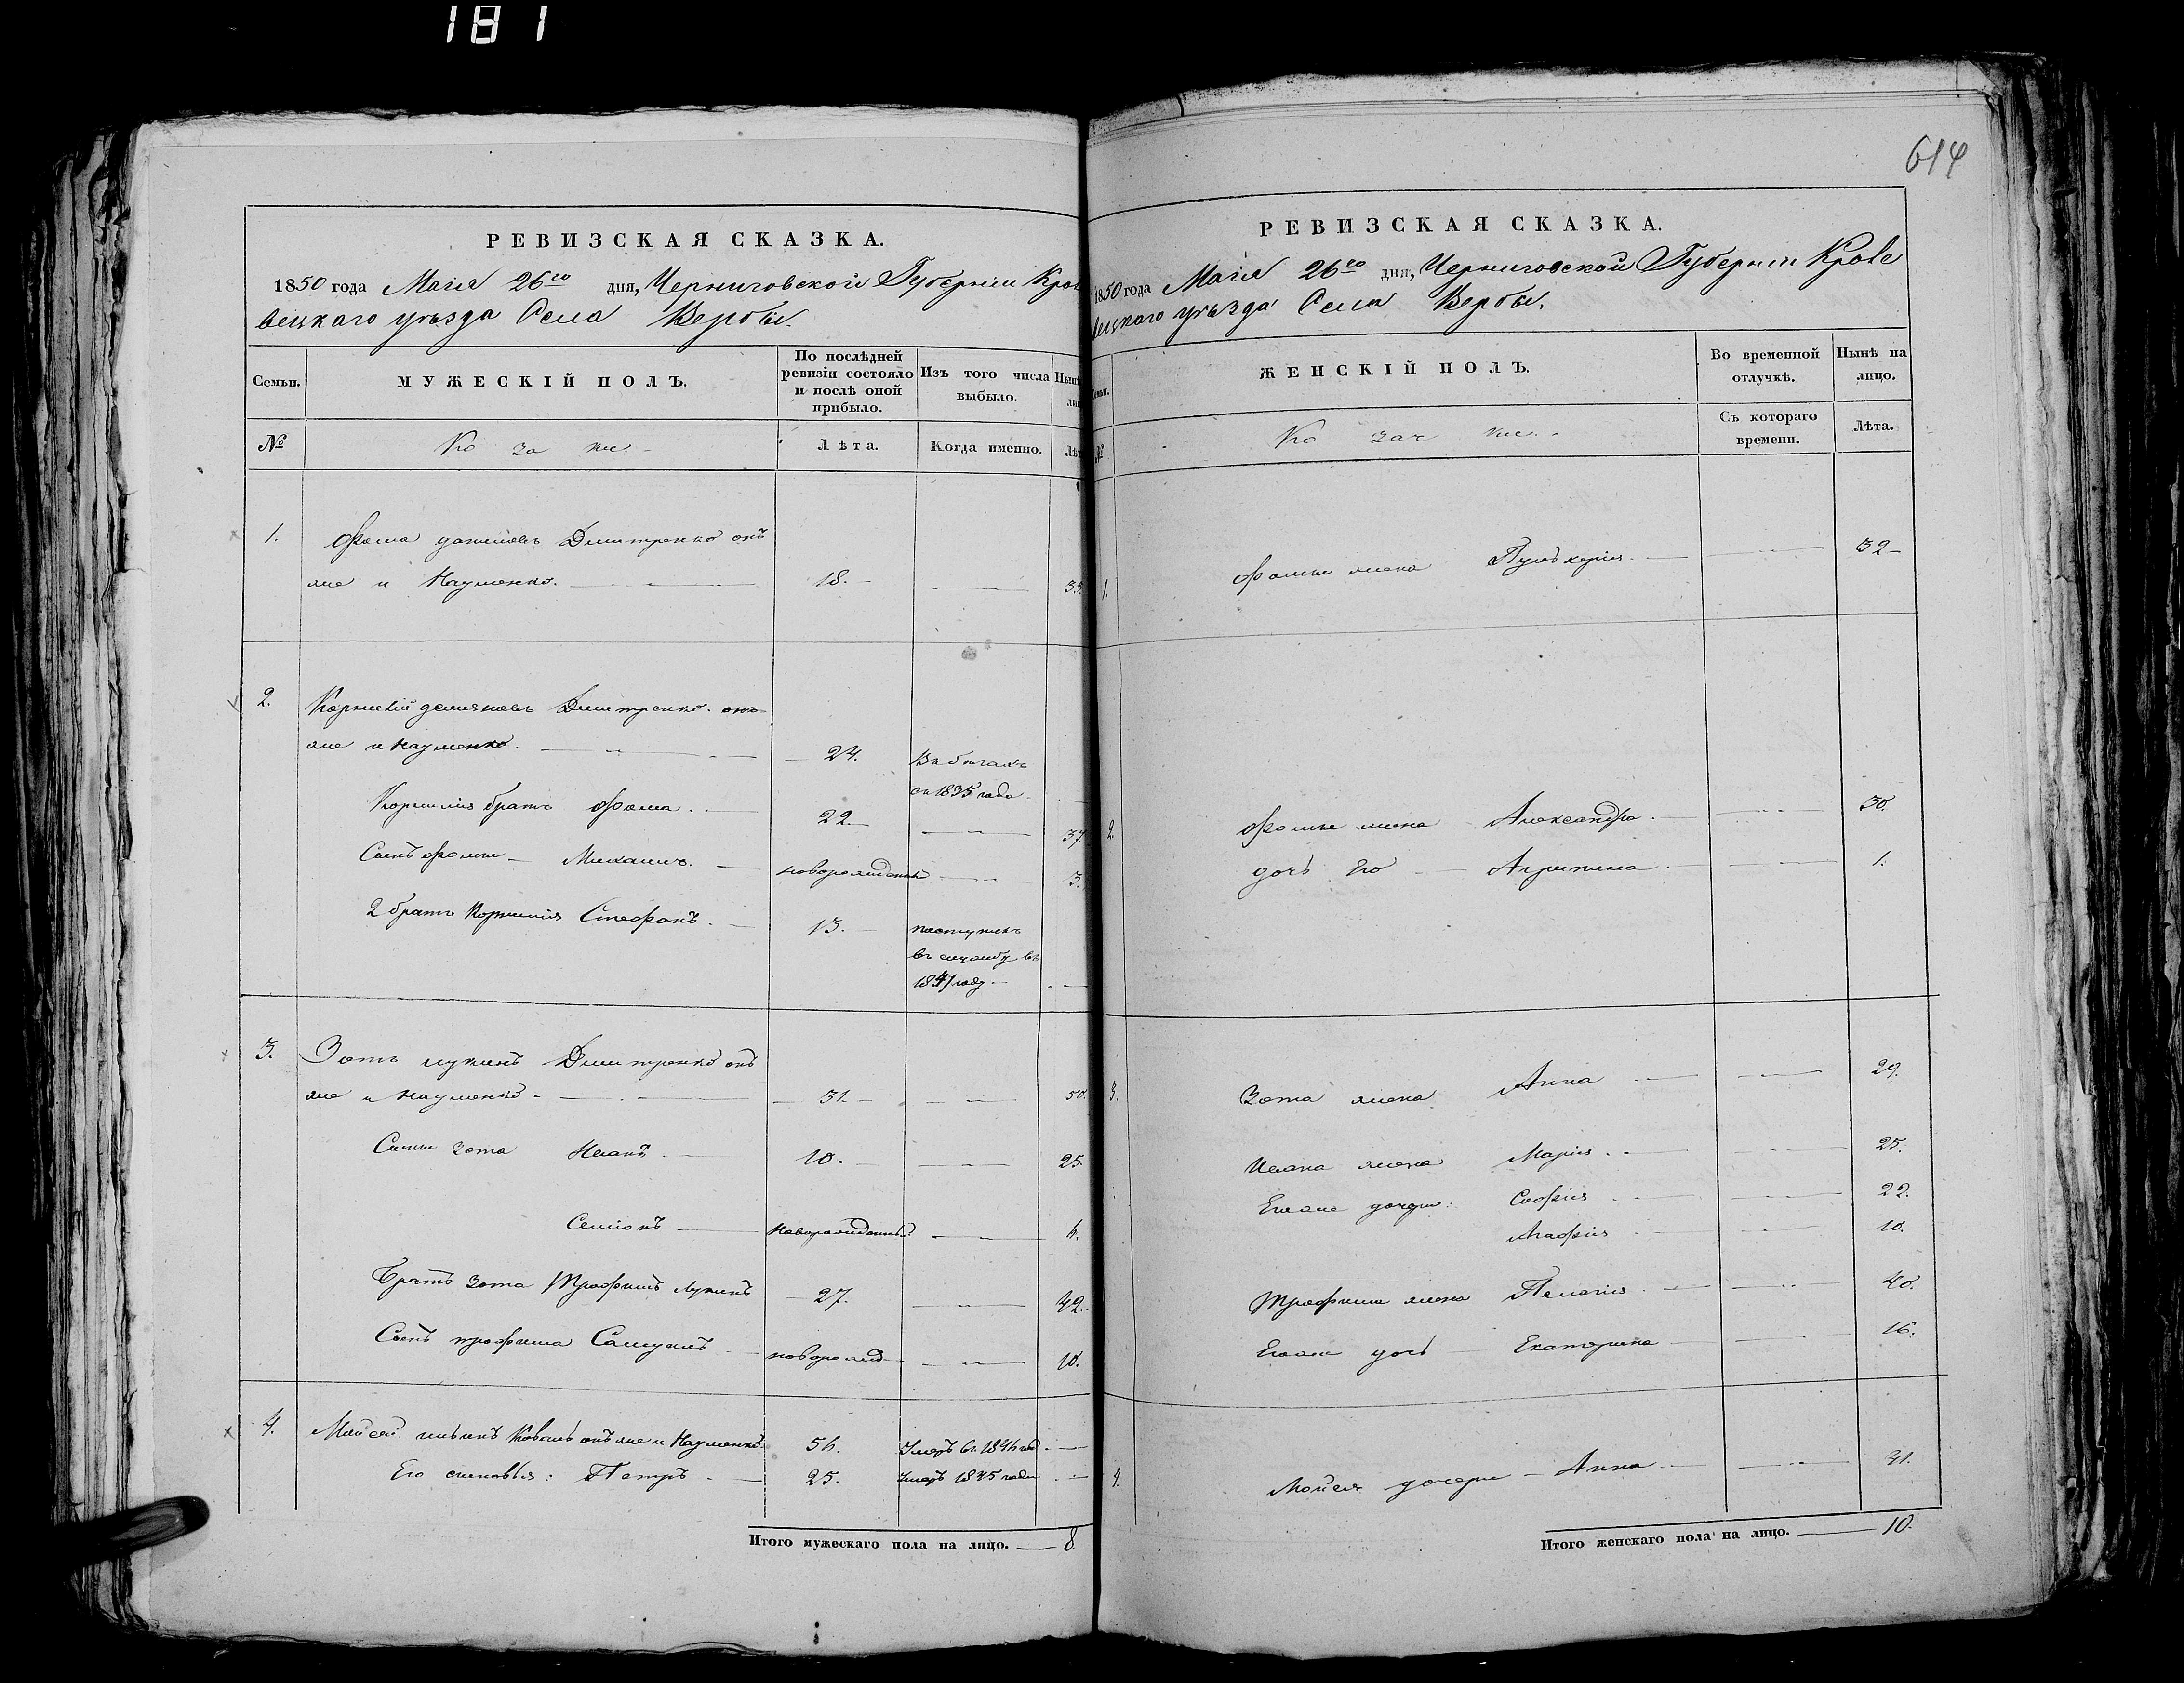 181
614
РЕВИЗСКАЯ СКАЗКА.
1850 года Маія 26го дня, Черниговской Губерніи Кроле
вецкаго уѣзда Села Вербы.
Семьи.
МУЖЕСКІЙ ПОЛЪ.
По послѣдней ревизіи состояло и послѣ оной прибыло.
Изъ того числа выбыло.
Нынѣ
№
Ко за ки
Лѣта.
Когда именно.
Лѣт
1. Фома Дмитренко онъ
же и Науменко. 18. 33.
2. Корнилій Демяновъ Дмитренко онъ
же и Науменко. 24. Въ бегахъ
съ 1835 года
Корнилія братъ Фома. 22. 37.
Сынъ Фомы Михаилъ. новорожденъ 3.
2 братъ Корнилія Стефанъ. 13. поступилъ
въ службу въ
1841 году
3. Зотъ Лукинъ Дмитренко онъ
же и Науменко 31. 50.
Сыны Зота Иванъ 10. 25.
Семіонъ новорожденъ 6.
Братъ Зота Трофимъ Лукинъ 27. 42.
Сынъ Трофима Самуилъ новорожд 10.
4. Мойсей Коваль онъ же и Науменко 56. Умеръ въ 1846 год
Его сыновья: Петръ 25. Умеръ 1835 года
Итого мужескаго пола на лицо. 8.
РЕВИЗСКАЯ СКАЗКА.
1850 года Маія 26го дня, Черниговской Губерніи Кроле
вецкаго уѣзда Села Вербы.
ЖЕНСКІЙ ПОЛЪ.
Во временной отлучкѣ.
Нынѣ на лицо.
№
Ко зач ке
Съ котораго времени.
Лѣта.
1. Фомы жена Пульхерія. 32
2. Фомы жена Александра. 30.
дочь Его Агрипина 1.
3. Зота жена Анна 29.
Ивана жена Марія. 25.
Егоже дочери: Софія 22.
Агафія 10.
Трофима жена Пелагія 40.
Егоже дочь Екатерина 16.
4. Мойсея дочери Анна 31.
Итого женскаго пола на лицо. 10.